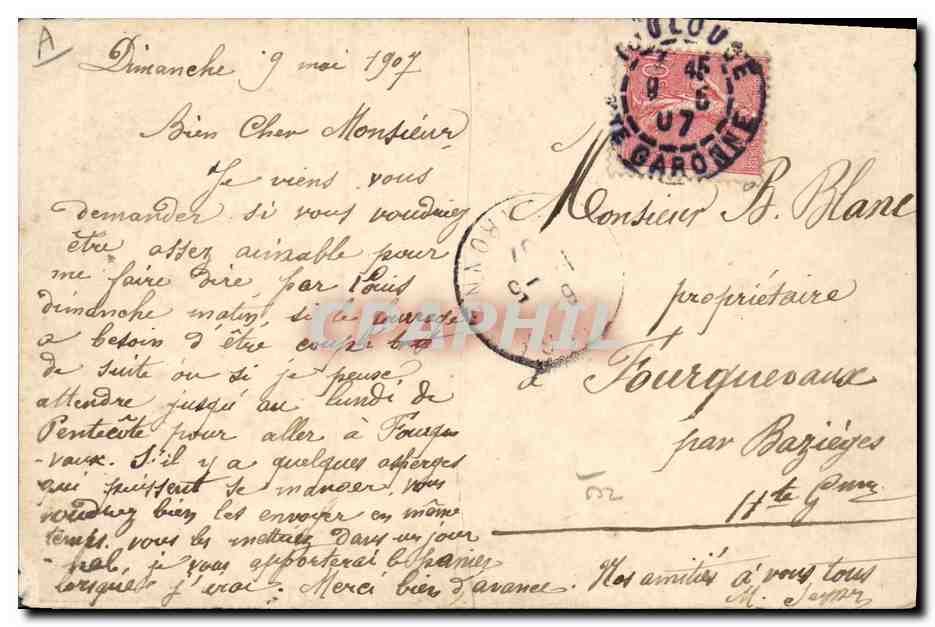 A
Dimanche 9 mai 1907
Bien Cher Monsieur
Je viens vous
demander si vous voudriez
être assez aimable pour
me faire dire par Louis
dimanche matin, si le fourrage
a besoin d'être coupé tout
de suite ou si je peux
attendre jusqu'au lundi de
Pentecôte pour aller à Fourque
-vaux. S'il y a quelques asperges
qui puissent se manger, vous
voudrez bien les envoyer en même
temps. vous les mettrez dans un jour
-nal, je vous apporterai le panier
lorsque j'irai. Merci bien d'avance. Nos amitiés à vous tous
M.
TOULOUSE
45
9 5
07
HTE GARONNE
Monsieur B. Blanc
propriétaire
à Fourquevaux
par Baziéges
Hte Gnne
CPAPHIL